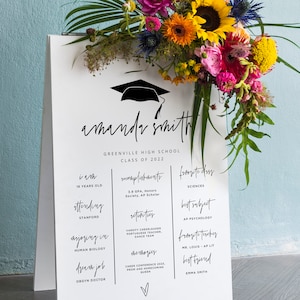 amanda smith
GREENVILLE HIGH SCHOOL
CLASS OF 2022
i am
18 YEARS OLD
attending
STANFORD
majoring in
HUMAN BIOLOGY
dream job
OBGYN DOCTOR
accomplishments
3.8 GPA, Honors
Society, AP Scholar
activities
VARSITY CHEERLEADING
YEARBOOK
memories
favorite class
best subject
AP PSYCHOLOGY
favorite teacher
MR. LOUIS - AP LIT
best friend
EMMA SMITH